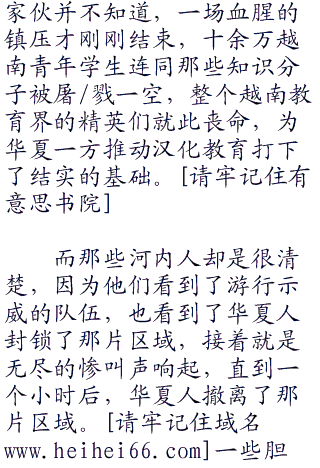 家伙并不知道，一场血腥的
镇压才刚刚结束，十余万越
南青年学生连同那些知识分
子被屠/戮一空，整个越南教
育界的精英们就此丧命，为
华夏一方推动汉化教育打下
了结实的基础。[请牢记住有
意思书院]
而那些河内人却是很清
楚，因为他们看到了游行示
威的队伍，也看到了华夏人
封锁了那片区域，接着就是
无尽的惨叫声响起，直到一
个小时后，华夏人撤离了那
片区域。[请牢记住域名
www.heihei66.com]一些胆